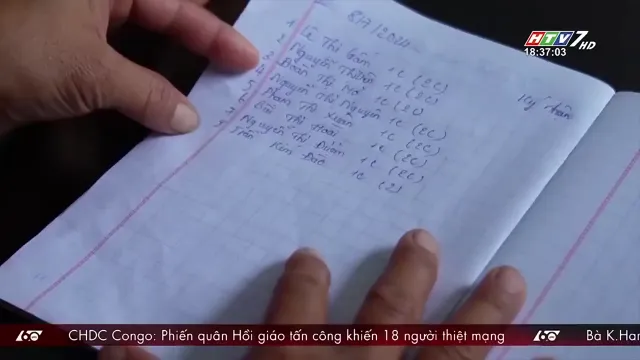 HTV7 HD
18:37:03
8/7/2024
Ký nhận
1 Lê Thị Gấm 1c (2c)
2 Nguyễn 1c (2c)
3 Đoàn Thị Nở 1c (2c)
4 Nguyễn Thị Nguyên 1c (2c)
5 Phạm Thị Xuân 1c (2c)
6 Bùi Thị Hoài 1c (2c)
7 Nguyễn Thị Điểm 1c (2c)
Trần Kim Đắc 1c (2)
60 CHDC Congo: Phiến quân Hồi giáo tấn công khiến 18 người thiệt mạng 60 Bà K.Har